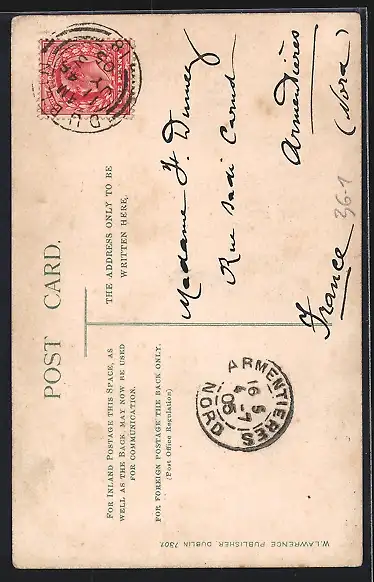 POST CARD.
FOR INLAND POSTAGE THIS SPACE, AS
WELL AS THE BACK, MAY NOW BE USED
FOR COMMUNICATION.
FOR FOREIGN POSTAGE THE BACK ONLY.
(Post Office Regulation)
THE ADDRESS ONLY TO BE
WRITTEN HERE.
DUBLIN
Madame F.
Rue Sadi Carnot
Armentières
(Nord)
France
36-1
ARMENTIERES
16 5
4 -7
05
NORD
W. LAWRENCE PUBLISHER, DUBLIN 7301